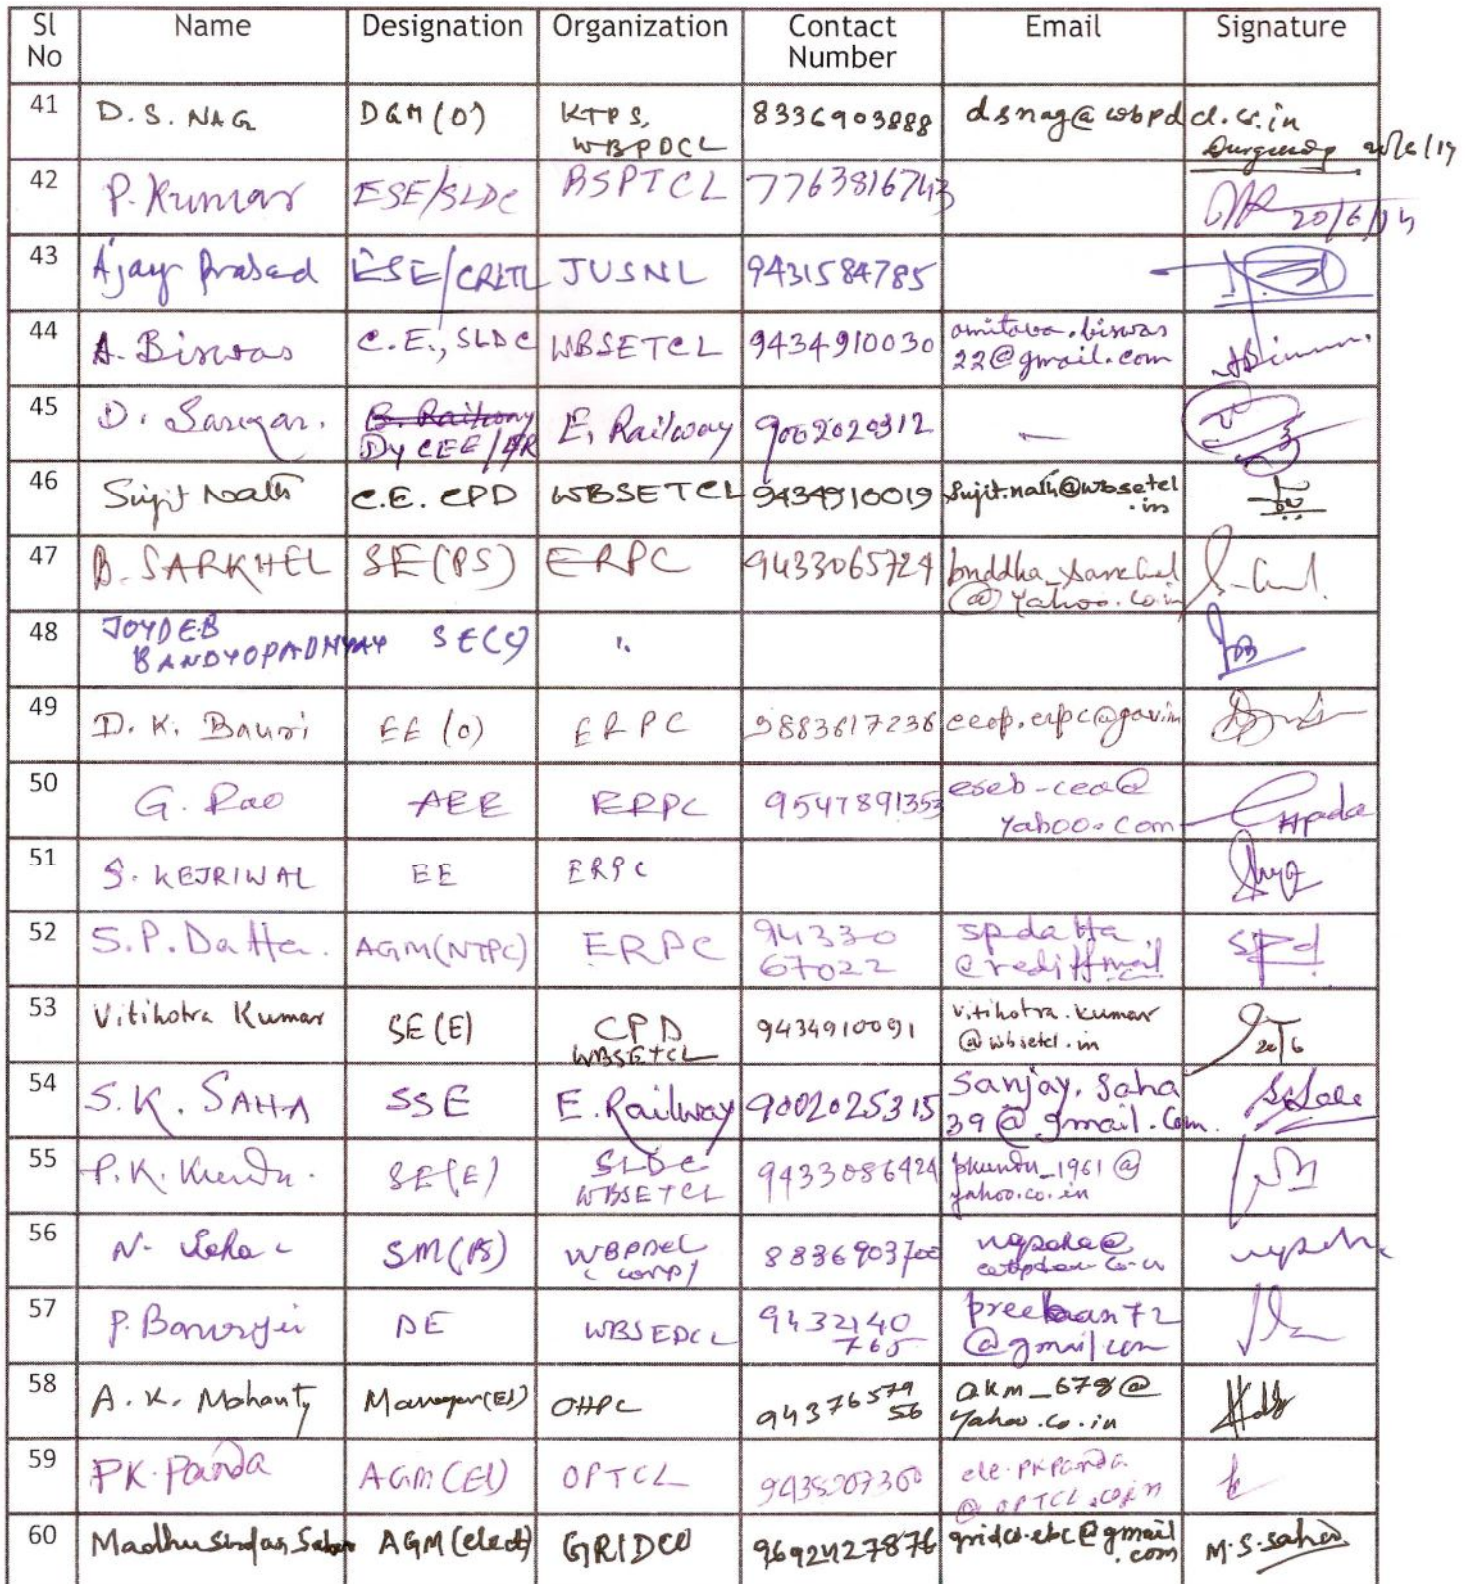 Sl No Name Designation Organization Contact Number Email Signature
41 D.S. NAG DGM (O) KTPS, WBPDCL 8336903888 dsnag@wbpdcl.co.in
42 P. Kumar ESE/SLDC BSPTCL 7763816743 20/6/14
43 Ajay Prasad ESE/CRITL JUSNL 9431584785
44 A. Biswas C.E., SLDC WBSETCL 9434910030 amitava.biswas22@gmail.com
45 D. Sarkar. Dy CEE/ER E. Railway 9002020312 —
46 Sujit Nath C.E. CPD WBSETCL 9434910019 Sujit.nath@wbsetcl.in
47 B. SARKHEL SE(PS) ERPC 9433065724 buddha_sarkhel@yahoo.co.in
48 JOYDEB BANDYOPADHYAY SE(C) "
49 D. K. Bauri EE (O) ERPC 9883617236 eeop.erpc@gov.in
50 G. Rao AEE ERPC 9547891353 eseb-cea@yahoo.com
51 S. KEJRIWAL EE ERPC
52 S.P. Datta. AGM(NTPC) ERPC 94330 67022 spdatta@rediffmail SPd
53 Vitihotra Kumar SE (E) CPD WBSETCL 9434910091 vitihotra.kumar@wbsetcl.in 20/6
54 S.K. SAHA SSE E. Railway 9002025315 Sanjay.Saha39@gmail.Com.
55 P.K. Kundu. SE(E) SLDC WBSETCL 9433086424 pkundu_1961@yahoo.co.in
56 N. Saha SM(PS) WBPDCL (Corp) 8336903700
57 P. Banerjee DE WBSEDCL 9432140765 @gmail.com
58 A. K. Mohanty Manager(El) OHPC 9437657956 akm_678@yahoo.co.in
59 PK. Panda AGM(El) OPTCL 9438907300 ele.pkpanda@OPTCL.co.in
60 Madhusudan Sahoo AGM (elect) GRIDCO 9692427876 gridco.ebc@gmail.com M.S. Sahoo